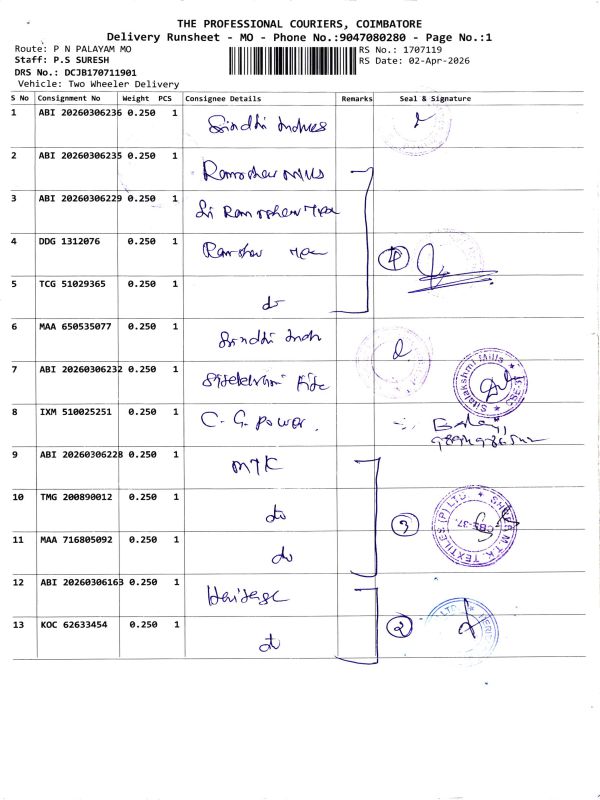 THE PROFESSIONAL COURIERS, COIMBATORE
Delivery Runsheet - MO - Phone No.:9047080280 - Page No.:1
Route: P N PALAYAM MO
RS No.: 1707119
Staff: P.S SURESH
RS Date: 02-Apr-2026
DRS No.: DCJB170711901
Vehicle: Two Wheeler Delivery
S No Consignment No Weight PCS Consignee Details Remarks Seal & Signature
1 ABI 20260306236 0.250 1 Sindhi
2 ABI 20260306235 0.250 1
3 ABI 20260306229 0.250 1 Sri
4 DDG 1312076 0.250 1 4
5 TCG 51029365 0.250 1 do
6 MAA 650535077 0.250 1 Sindhi
7 ABI 20260306232 0.250 1 Sitalakshmi Mills
8 IXM 510025251 0.250 1 C.G. Power.
9 ABI 20260306228 0.250 1 MTK
10 TMG 200890012 0.250 1 do 3 M.T.K. TEXTILES (P) LTD.
11 MAA 716805092 0.250 1 do
12 ABI 20260306163 0.250 1 Heritage
13 KOC 62633454 0.250 1 do 2